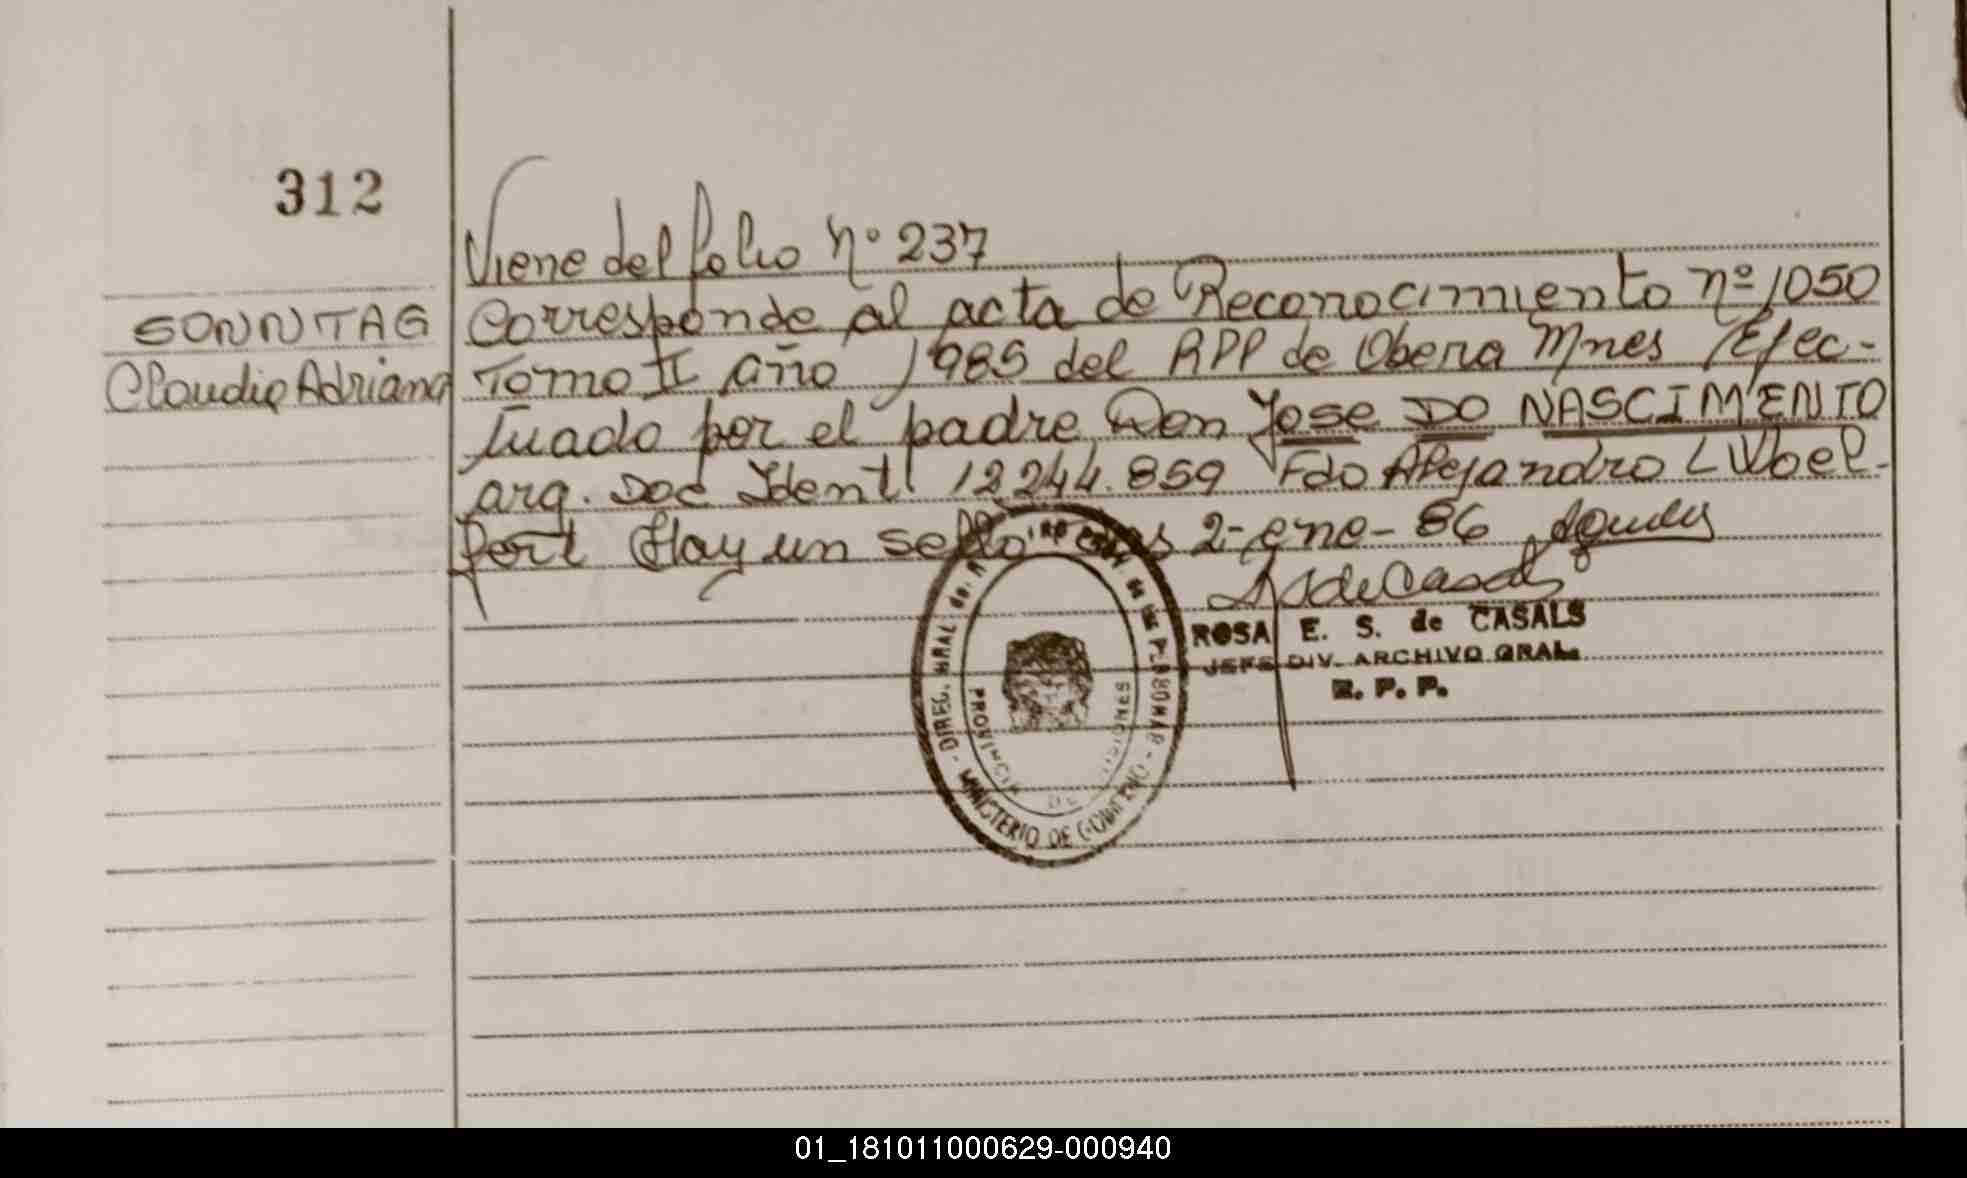 312
SONNTAG
Claudia Adriana
Viene del folio nº 237
Corresponde al acta de Reconocimiento nº 1050
Tomo II año 1985 del RPP de Obera Mnes Efec-
tuado por el padre Don Jose DO NASCIMENTO
arg. Doc Ident 12.244.859 Fdo Alejandro L Woel-
fert Hay un sello 2-ene-86
ROSA E. S. de CASALS
JEFE DIV. ARCHIVO GRAL.
R. P. P.
PROVINCIA DE MISIONES
MINISTERIO DE GOBIERNO
01_181011000629-000940